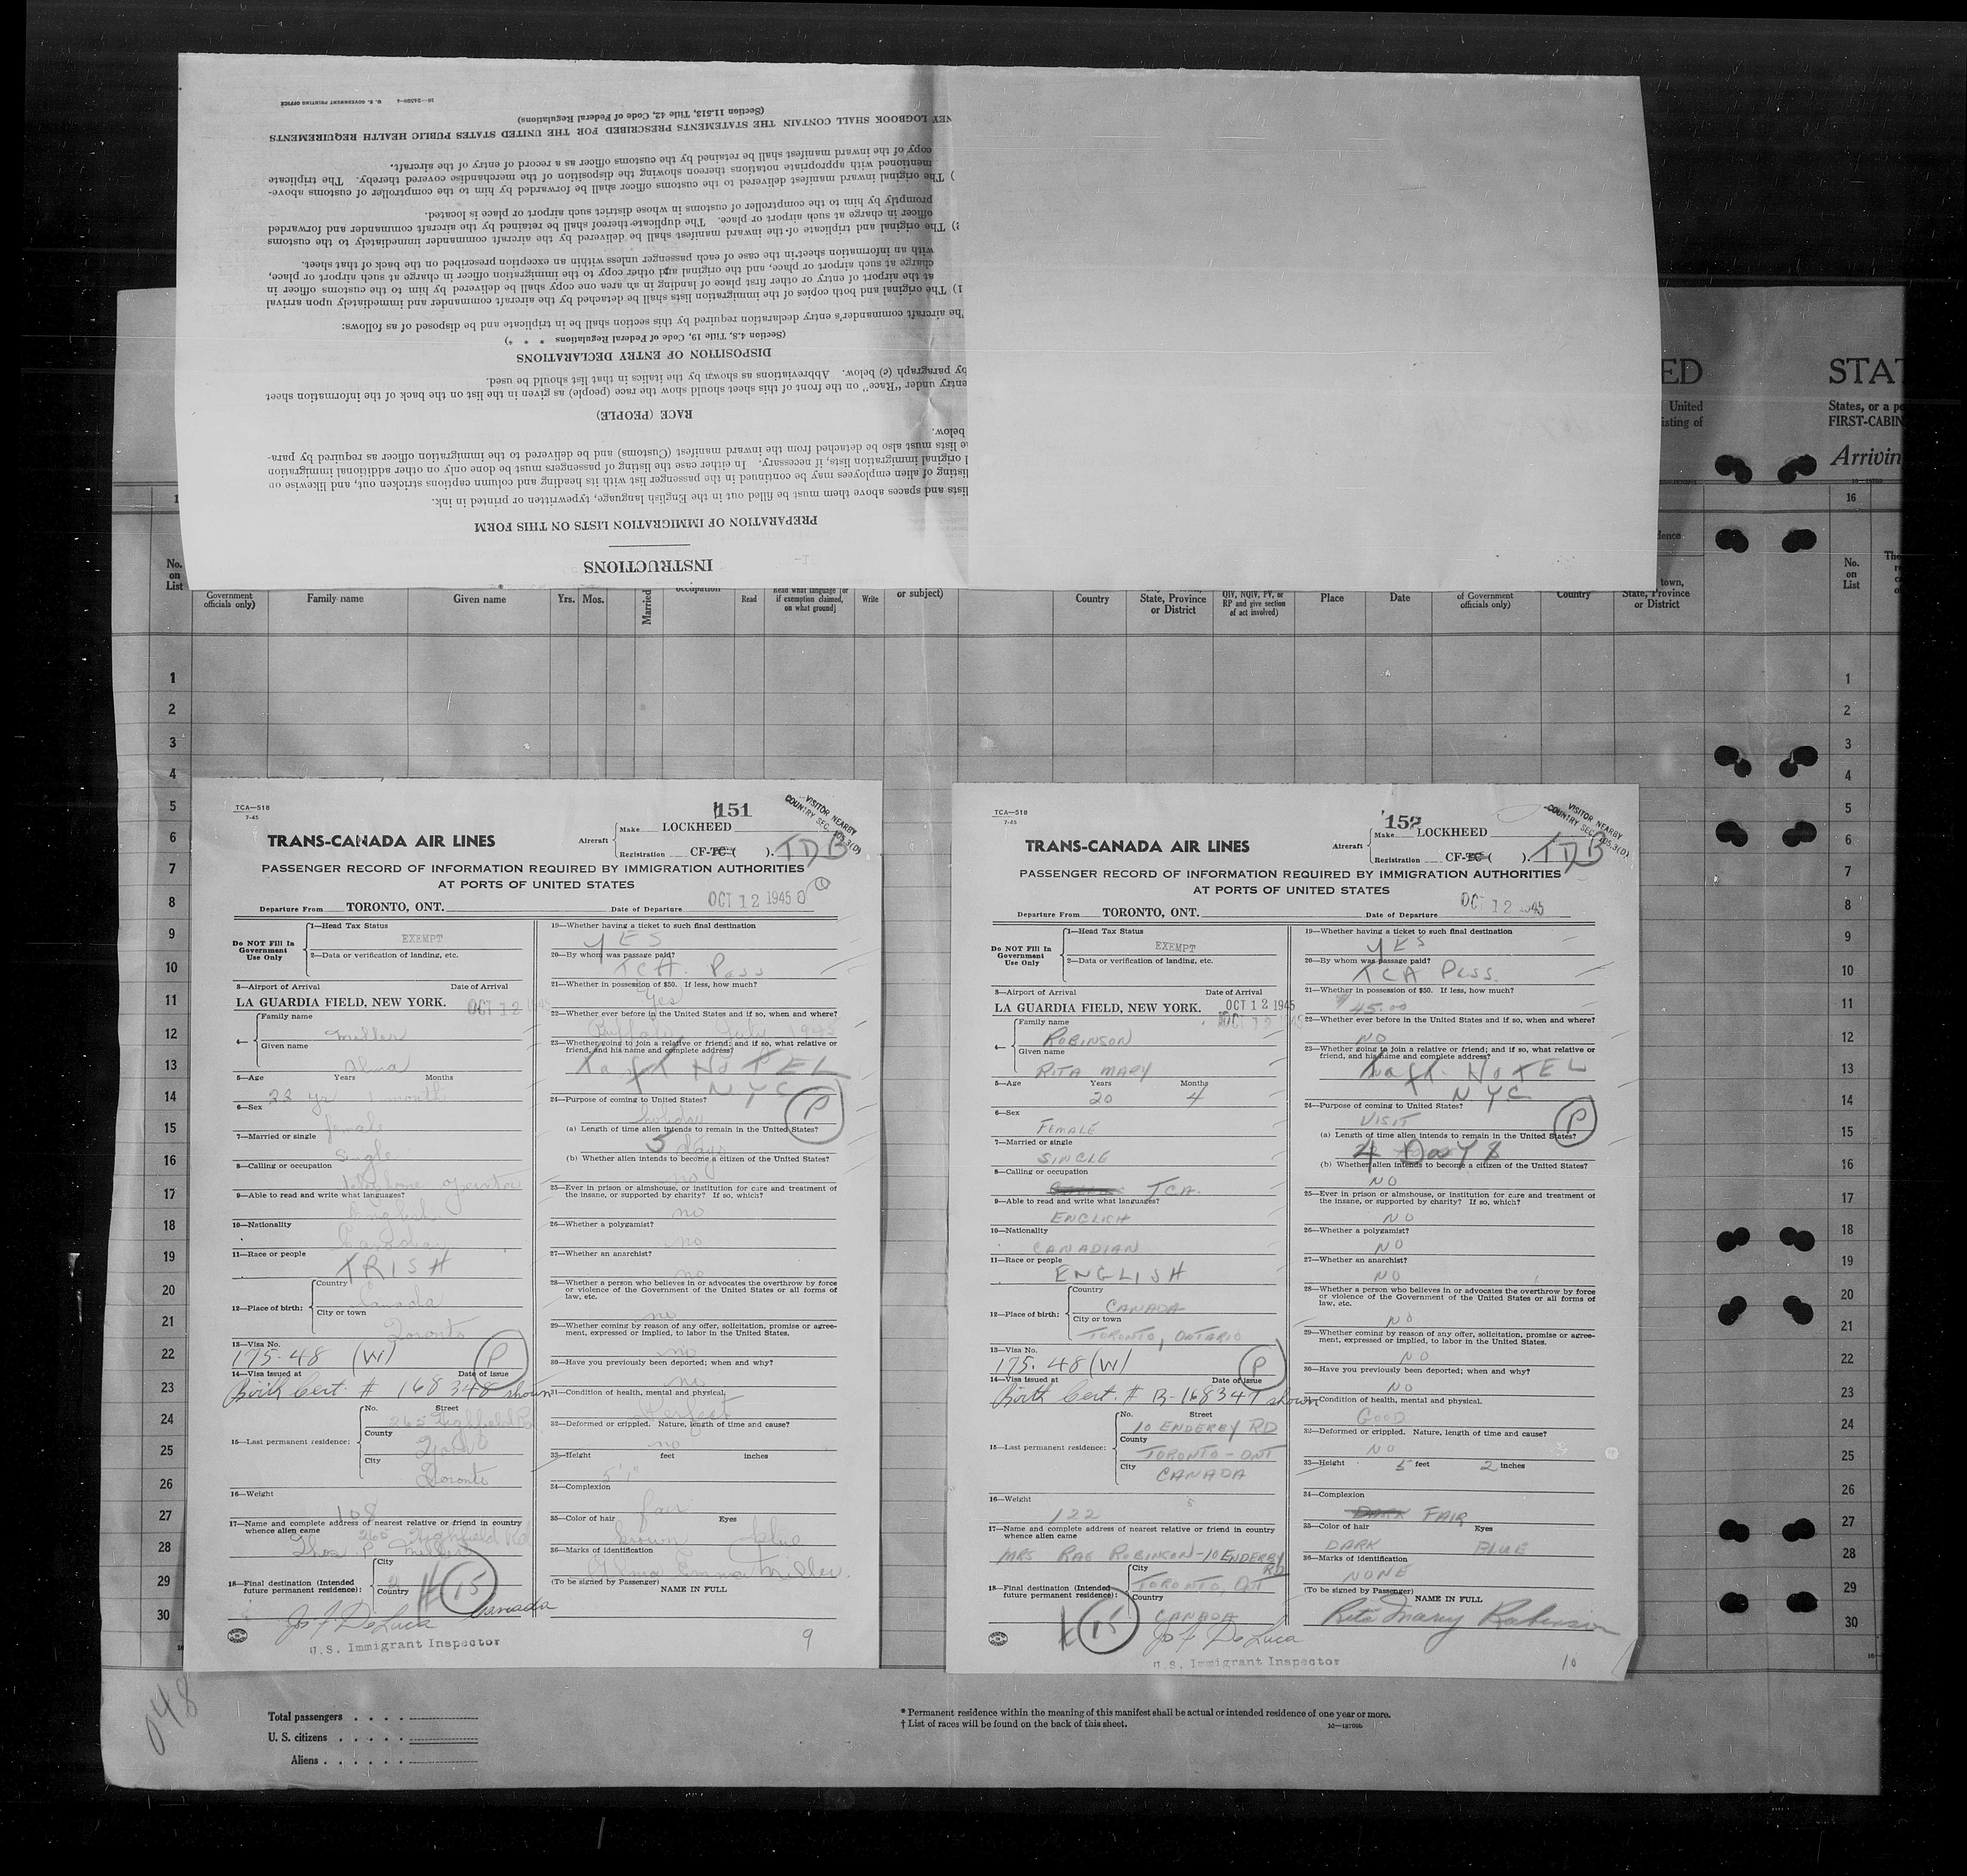 16—24509-4 U. S. GOVERNMENT PRINTING OFFICE
(Section 11.513, Title 42, Code of Federal Regulations)
LOGBOOK SHALL CONTAIN THE STATEMENTS PRESCRIBED FOR THE UNITED STATES PUBLIC HEALTH REQUIREMENTS
copy of the inward manifest shall be retained by the customs officer as a record of entry of the aircraft.
mentioned with appropriate notations thereon showing the disposition of the merchandise covered thereby. The triplicate
) The original inward manifest delivered to the customs officer shall be forwarded by him to the comptroller of customs above-
promptly by him to the comptroller of customs in whose district such airport or place is located.
officer in charge at such airport or place. The duplicate thereof shall be retained by the aircraft commander and forwarded
) The original and triplicate of the inward manifest shall be delivered by the aircraft commander immediately to the customs
with an information sheet in the case of each passenger unless within an exception prescribed on the back of that sheet.
charge at such airport or place, and the original and other copy to the immigration officer in charge at such airport or place,
at the airport of entry or other first place of landing in an area one copy shall be delivered by him to the customs officer in
1) The original and both copies of the immigration lists shall be detached by the aircraft commander and immediately upon arrival
he aircraft commander's entry declaration required by this section shall be in triplicate and be disposed of as follows:
(Section 4.8, Title 19, Code of Federal Regulations * * *)
DISPOSITION OF ENTRY DECLARATIONS
by paragraph (c) below. Abbreviations as shown by the italics in that list should be used.
entry under "Race" on the front of this sheet should show the race (people) as given in the list on the back of the information sheet
RACE (PEOPLE)
below.
e lists must also be detached from the inward manifest (Customs) and be delivered to the immigration officer as required by para-
l original immigration lists, if necessary. In either case the listing of passengers must be done only on other additional immigration
listing of alien employees may be continued in the passenger list with its heading and column captions stricken out, and likewise on
lists and spaces above them must be filled out in the English language, typewritten or printed in ink.
PREPARATION OF IMMIGRATION LISTS ON THIS FORM
INSTRUCTIONS
ED STAT
United States, or a po
isting of FIRST-CABIN
Arrivin
16
No. on List
Government officials only)
Family name
Given name
Yrs. Mos.
Married
occupation
Read
Read what language [or if exemption claimed, on what ground]
Write
or subject)
Country
State, Province or District
QIV, NQIV, PV, or RP and give section of act involved)
Place
Date
of Government officials only)
Country
town, State, Province or District
No. on List
1
2
3
4
5
6
7
8
9
10
11
12
13
14
15
16
17
18
19
20
21
22
23
24
25
26
27
28
29
30
TCA—518
7-45
151
VISITOR NEARBY
COUNTRY SEC. 105.3(D)
TRANS-CANADA AIR LINES
Aircraft Make LOCKHEED
Registration CF-TC ( ). TDB
PASSENGER RECORD OF INFORMATION REQUIRED BY IMMIGRATION AUTHORITIES
AT PORTS OF UNITED STATES
Departure From TORONTO, ONT. Date of Departure OCT 12 1945
Do NOT Fill In Government Use Only
1—Head Tax Status
EXEMPT
2—Data or verification of landing, etc.
3—Airport of Arrival Date of Arrival
LA GUARDIA FIELD, NEW YORK. OCT 12 1945
4— Family name
Miller
Given name
Alma
5—Age Years Months
22 yr 1 month
6—Sex
female
7—Married or single
Single
8—Calling or occupation
telephone operator
9—Able to read and write what languages?
English
10—Nationality
Canadian
11—Race or people
IRISH
12—Place of birth: Country
Canada
City or town
Toronto
13—Visa No.
175.48 (W) P
14—Visa issued at Date of Issue
Birth Cert. # 168348 shown
15—Last permanent residence: No. Street
265 Highfield Rd
County
York
City
Toronto
16—Weight
108
17—Name and complete address of nearest relative or friend in country whence alien came
265 Highfield Rd
Thos. P. Miller
18—Final destination (Intended future permanent residence): City
Country
15
Canada
Jos F DeLuca
U.S. Immigrant Inspector
19—Whether having a ticket to such final destination
YES
20—By whom was passage paid?
TCA. Pass
21—Whether in possession of $50. If less, how much?
Yes
22—Whether ever before in the United States and if so, when and where?
Buffalo July 1945
23—Whether going to join a relative or friend; and if so, what relative or friend, and his name and complete address?
Taft HOTEL
NYC
24—Purpose of coming to United States?
holiday
P
(a) Length of time alien intends to remain in the United States?
5 days
(b) Whether alien intends to become a citizen of the United States?
no
25—Ever in prison or almshouse, or institution for care and treatment of the insane, or supported by charity? If so, which?
no
26—Whether a polygamist?
no
27—Whether an anarchist?
no
28—Whether a person who believes in or advocates the overthrow by force or violence of the Government of the United States or all forms of law, etc.
no
29—Whether coming by reason of any offer, solicitation, promise or agreement, expressed or implied, to labor in the United States.
no
30—Have you previously been deported; when and why?
no
31—Condition of health, mental and physical.
Perfect
32—Deformed or crippled. Nature, length of time and cause?
no
33—Height feet inches
5'1"
34—Complexion
fair
35—Color of hair Eyes
brown blue
36—Marks of identification
Alma Emma Miller.
(To be signed by Passenger) NAME IN FULL
9
TCA—518
7-45
152
VISITOR NEARBY
COUNTRY SEC. 105.3(D)
TRANS-CANADA AIR LINES
Aircraft Make LOCKHEED
Registration CF-TC ( ). TDB
PASSENGER RECORD OF INFORMATION REQUIRED BY IMMIGRATION AUTHORITIES
AT PORTS OF UNITED STATES
Departure From TORONTO, ONT. Date of Departure OCT 12 1945
Do NOT Fill In Government Use Only
1—Head Tax Status
EXEMPT
2—Data or verification of landing, etc.
3—Airport of Arrival Date of Arrival
LA GUARDIA FIELD, NEW YORK. OCT 12 1945
4— Family name
ROBINSON
Given name
RITA MARY
5—Age Years Months
20 4
6—Sex
FEMALE
7—Married or single
SINGLE
8—Calling or occupation
TCA.
9—Able to read and write what languages?
ENGLISH
10—Nationality
CANADIAN
11—Race or people
ENGLISH
12—Place of birth: Country
CANADA
City or town
TORONTO, ONTARIO
13—Visa No.
175.48 (W) P
14—Visa issued at Date of Issue
Birth Cert. # B-168347 shown
15—Last permanent residence: No. Street
10 ENDERBY RD
County
TORONTO - ONT
City
CANADA
16—Weight
122
17—Name and complete address of nearest relative or friend in country whence alien came
MRS RAE ROBINSON - 10 ENDERBY RD
18—Final destination (Intended future permanent residence): City
TORONTO, ONT
Country
CANADA
15
Jos F DeLuca
U.S. Immigrant Inspector
19—Whether having a ticket to such final destination
YES
20—By whom was passage paid?
TCA Pass.
21—Whether in possession of $50. If less, how much?
$45.00
22—Whether ever before in the United States and if so, when and where?
NO
23—Whether going to join a relative or friend; and if so, what relative or friend, and his name and complete address?
Taft HOTEL
NYC
24—Purpose of coming to United States?
VISIT
P
(a) Length of time alien intends to remain in the United States?
4 Days
(b) Whether alien intends to become a citizen of the United States?
NO
25—Ever in prison or almshouse, or institution for care and treatment of the insane, or supported by charity? If so, which?
NO
26—Whether a polygamist?
NO
27—Whether an anarchist?
NO
28—Whether a person who believes in or advocates the overthrow by force or violence of the Government of the United States or all forms of law, etc.
NO
29—Whether coming by reason of any offer, solicitation, promise or agreement, expressed or implied, to labor in the United States.
NO
30—Have you previously been deported; when and why?
NO
31—Condition of health, mental and physical.
GOOD
32—Deformed or crippled. Nature, length of time and cause?
NO
33—Height 5 feet 2 inches
34—Complexion
DARK FAIR
35—Color of hair Eyes
DARK BLUE
36—Marks of identification
NONE
(To be signed by Passenger) NAME IN FULL
Rita Mary Robinson
10
048
Total passengers
U. S. citizens
Aliens
* Permanent residence within the meaning of this manifest shall be actual or intended residence of one year or more.
† List of races will be found on the back of this sheet. 16—18709b